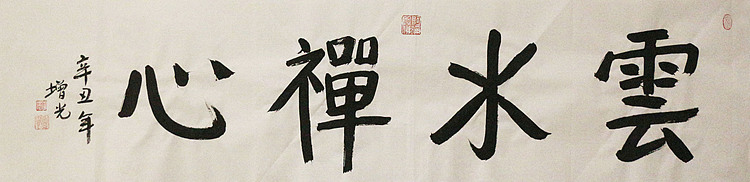 雲水禪心
辛丑年
增光